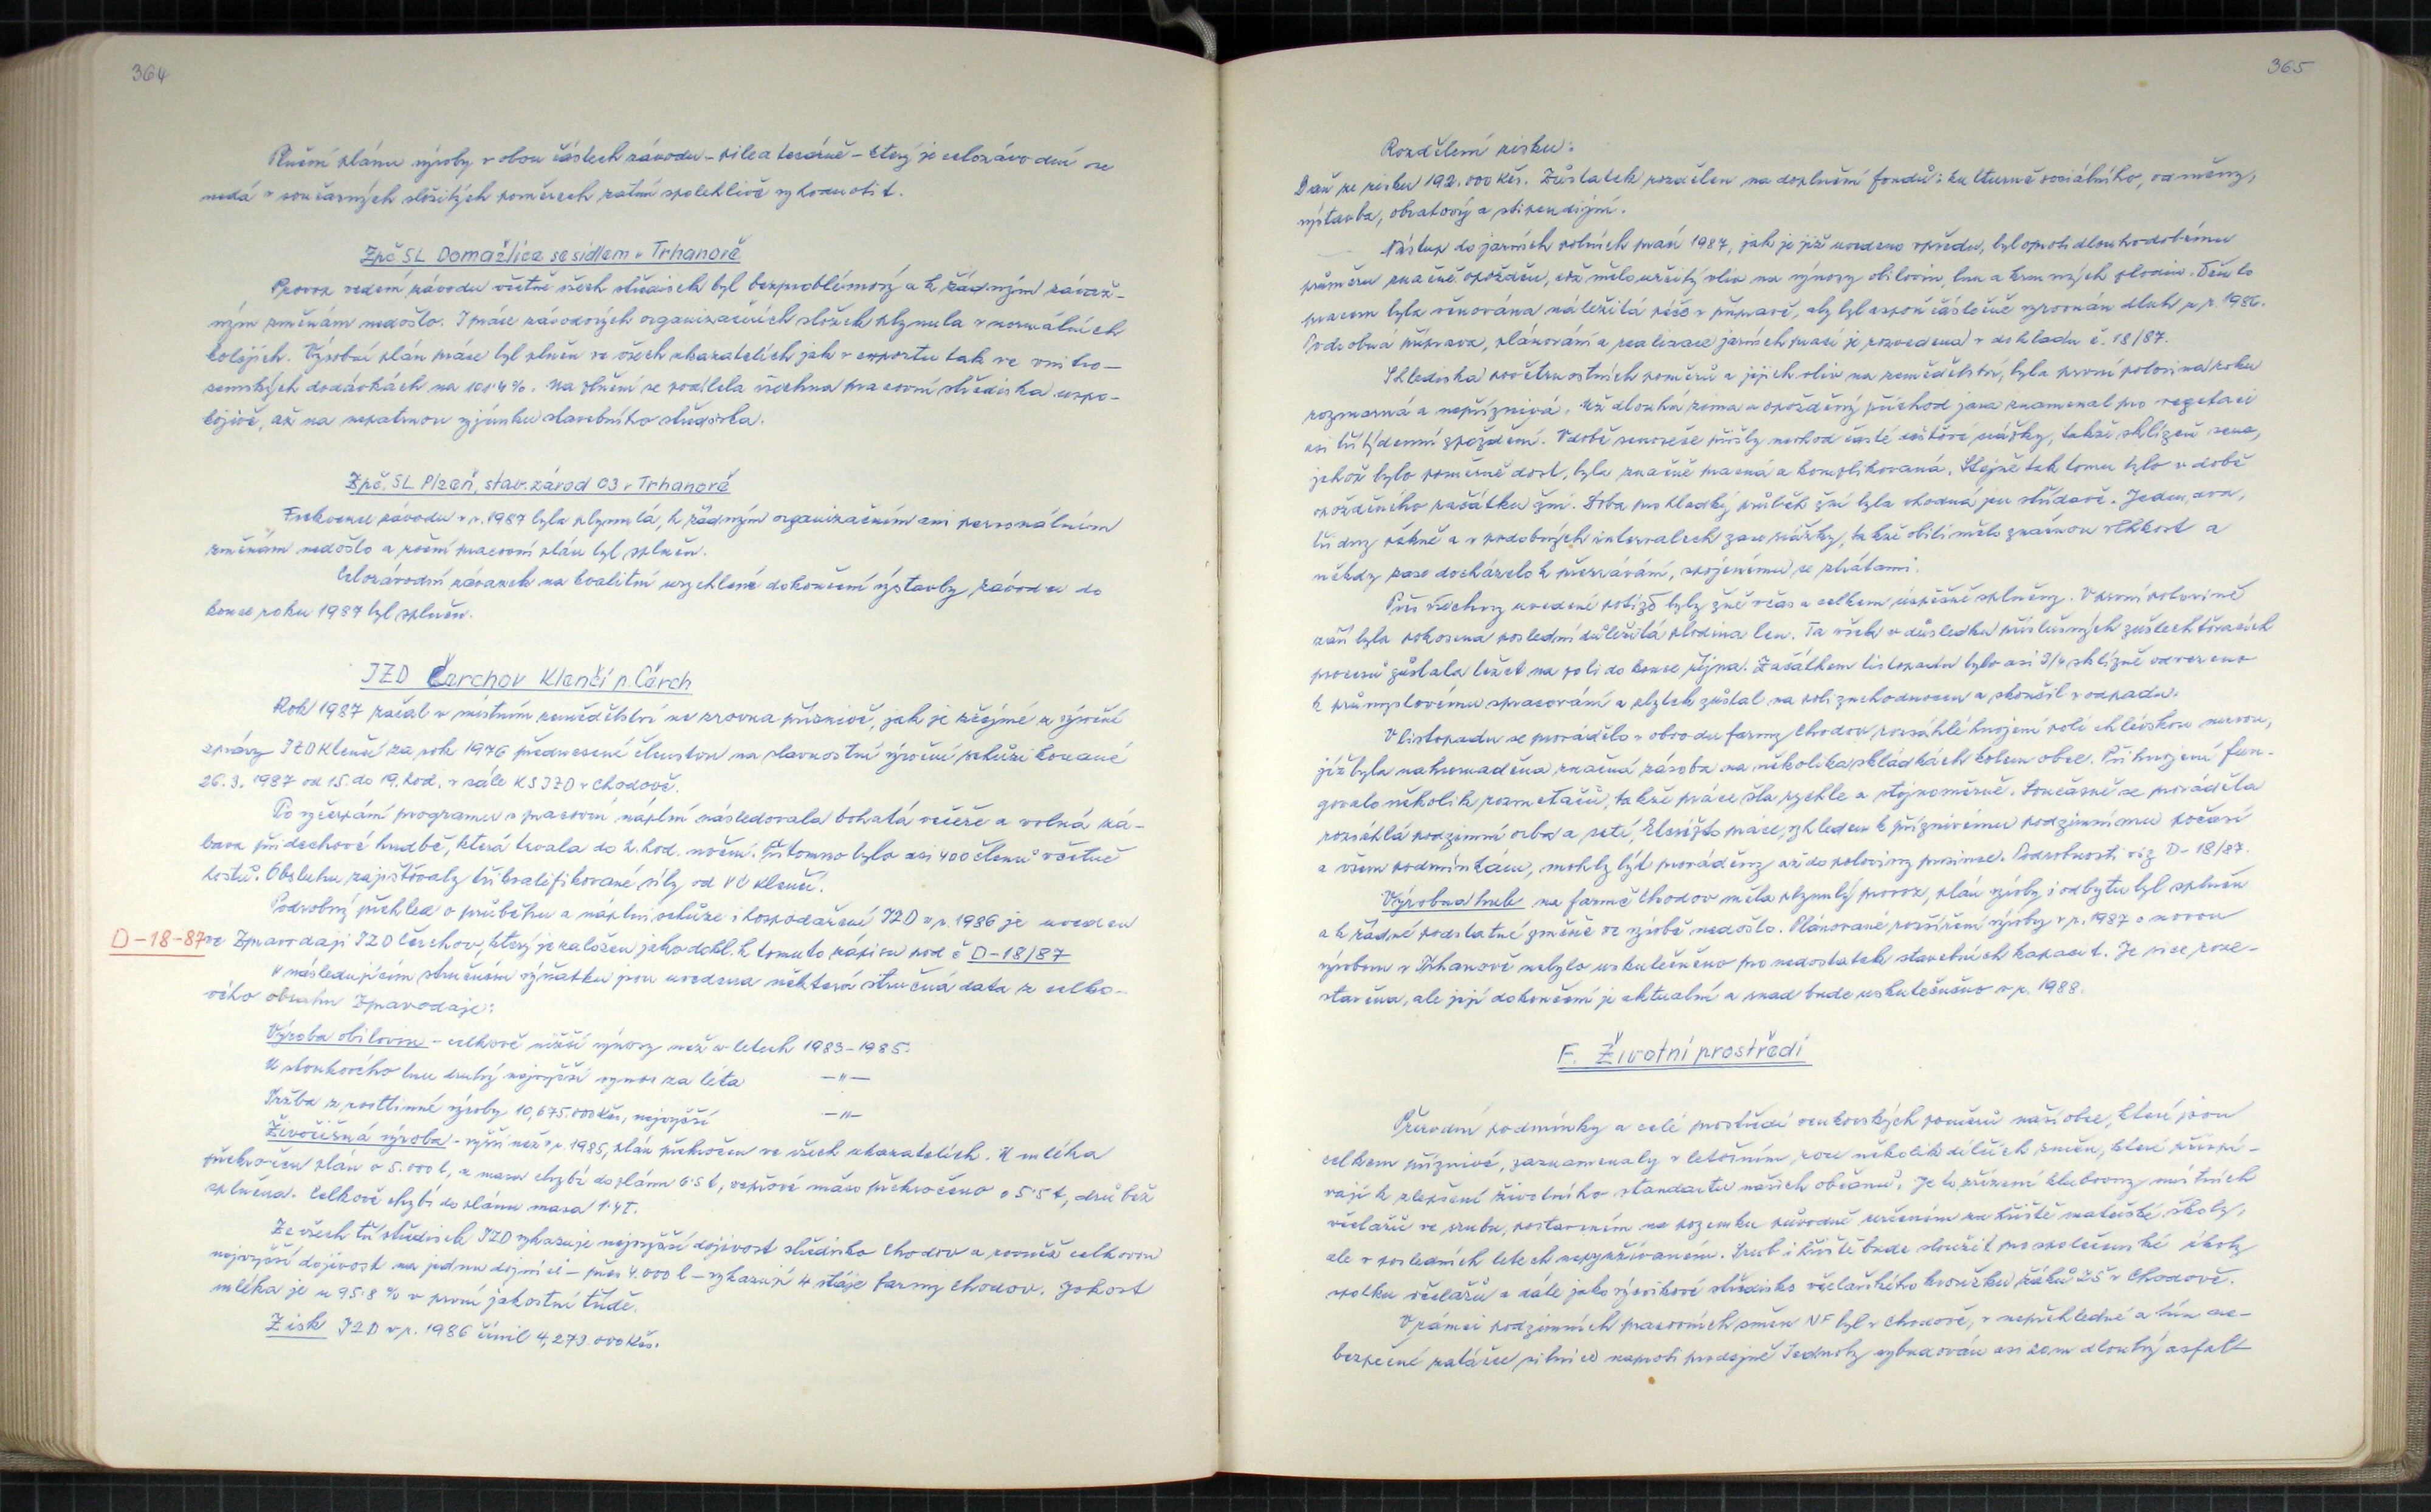 364
Plnění plánu výroby v obou částech závodu - pila a tesárně - který je celozávodní se
nedá v současných složitých poměrech zatím spolehlivě vyhodnotit.
Zpč SL Domažlice se sídlem v Trhanově
Provoz vedení závodu včetně všech středisek byl bezproblémový a k žádným závaž-
ným změnám nedošlo. I práce závodových organizačních složek plynula v normálních
kolejích. Výrobní plán práce byl plněn ve všech ukazatelích jak v exportu tak ve vnitro-
zemských dodávkách na 101·4%. Na plnění se podílela všechna pracovní střediska uspo-
kojivě, až na nepatrnou vyjímku stavebního střediska.
Zpč. SL Plzeň, stav. závod 03 v Trhanově
Frekvence závodu v r. 1987 byla plynulá, k žádným organizačním ani personálním
změnám nedošlo a roční pracovní plán byl splněn.
Celozávodní závazek na kvalitní urychlené dokončení výstavby závodu do
konce roku 1987 byl splněn.
JZD Čerchov Klenčí p. Čerch
Rok 1987 začal v místním zemědělství ne zrovna příznivě, jak je zřejmé z výroční
zprávy JZD Klenčí za rok 1976 přednesené členstvu na slavnostní výroční schůzi konané
26. 3. 1987 od 15. do 19. hod. v sále KS JZD v Chodově.
Po vyčerpání programu s pracovní náplní následovala bohatá večeře a volná zá-
bava při dechové hudbě, která trvala do 2. hod. noční. Přítomno bylo asi 400 členů včetně
hostů. Obsluhu zajišťovaly tři kvalifikované síly od VČ Klenčí.
Podrobný přehled o průběhu a náplni schůze i hospodaření JZD v r. 1986 je uveden
D-18-87 ve Zpravodaji JZD Čerchov, který je založen jako dokl. k tomuto zápisu pod č D-18/87
V následujícím stručném výňatku jsou uvedena některá stručná data z celko-
vého obsahu Zpravodaje:
Výroba obilovin - celkově nižší výnosy než v letech 1983-1985.
U stonkového lnu druhý nejvyšší výnos za léta -"-
Tržba z rostlinné výroby 10,675.000 Kčs, nejvyšší -"-
Živočišná výroba - vyšší než v r. 1985, plán překročen ve všech ukazatelích. U mléka
překročen plán o 5.000 l, u masa chybí do plánu 6·5 t, vepřové maso překročeno o 5·5 t, drůbež
splněna. Celkově chybí do plánu masa 1·4 t.
Ze všech tří středisek JZD vykazuje nejvyšší dojivost středisko Chodov a rovněž celkovou
nejvyšší dojivost na jednu dojnici - přes 4.000 l - vykazují 4 stáje farmy Chodov. Jakost
mléka je u 95·8 % v první jakostní třídě.
Zisk JZD v r. 1986 činil 4,273.000 Kčs.
365
Rozdělení zisku:
Daň ze zisku 192.000 Kčs. Zůstatek rozdělen na doplnění fondů: kulturně sociálního, odměny,
výstavba, obratový a stipendijní.
Nástup do jarních polních prací 1987, jak je již uvedeno vpředu, byl oproti dlouhodobému
průměru značně opožděn, což mělo určitý vliv na výnosy obilovin, lnu a krmných plodin. Těmto
pracem byla věnována náležitá péče v přípravě, aby byl aspoň částečně vyrovnán dluh z r. 1986.
Podrobná příprava, plánování a realizace jarních prací je rozvedena v dokladu č. 18/87.
S hlediska povětrnostních poměrů a jejich vliv na zemědělství, byla první polovina roku
rozmarná a nepříznivá. Už dlouhá zima a opožděný příchod jara znamenal pro vegetaci
asi tří týdenní zpoždění. V době senoseče přišly nevhod časté dešťové srážky, takže sklizeň sena,
jehož bylo poměrně dost, byla značně pracná a komplikovaná. Stejně tak tomu bylo v době
opožděného začátku žní. Doba pro hladký průběh žní byla vhodná jen střídavě. Jeden, dva,
tři dny pěkně a v podobných intervalech zase srážky, takže obilí mělo značnou vlhkost a
někdy zase docházelo k přezrávání, spojenému se ztrátami.
Přes všechny uvedené potíže byly žně včas a celkem úspěšně splněny. V první polovině
září byla pokosena poslední důležitá plodina len. Ta však v důsledku příslušných zušlechťovacích
procesů zůstala ležet na poli do konce října. Začátkem listopadu bylo asi 3/4 sklizně odvezeno
k průmyslovému zpracování a zbytek zůstal na poli znehodnocen a skončil v odpadu.
V listopadu se provádělo v obvodu farmy Chodov rozsáhlé hnojení polí chlévskou mrvou,
jíž byla nahromaděna značná zásoba na několika skládkách kolem obce. Při hnojení fun-
govalo několik rozmetačů, takže práce šla rychle a stejnoměrně. Současně se prováděla
rozsáhlá podzimní orba a setí, kteréžto práce, vzhledem k příznivému podzimnímu počasí
a všem podmínkám, mohly být prováděny až do poloviny prosince. Podrobnosti viz D-18/87.
Výrobna hub na farmě Chodov měla plynulý provoz, plán výroby i odbytu byl splněn
a k žádné podstatné změně ve výrobě nedošlo. Plánované rozšíření výroby v r. 1987 o novou
výrobnu v Trhanově nebylo uskutečněno pro nedostatek stavebních kapacit. Je sice roze-
stavěna, ale její dokončení je aktuální a snad bude uskutečněno v r. 1988.
F. Životní prostředí
Přírodní podmínky a celé prostředí venkovských poměrů naší obce, které jsou
celkem příznivé, zaznamenaly v letošním roce několik dílčích změn, které přispí-
vají k zlepšení životního standartu našich občanů. Je to zřízení klubovny místních
včelařů ve srubu, postaveném na pozemku původně určeném za hřiště mateřské školy,
ale v posledních letech nevyužívaném. Srub i hřiště bude sloužit pro společenské úkoly
spolku včelařů a dále jako výcvikové středisko včelařského kroužku žáků ZŠ v Chodově.
V rámci podzimních pracovních směn NF byl v Chodově, v nepřehledné a tím ne-
bezpečné zatáčce silnice naproti prodejně Jednoty vybudován asi 20 m dlouhý asfalt